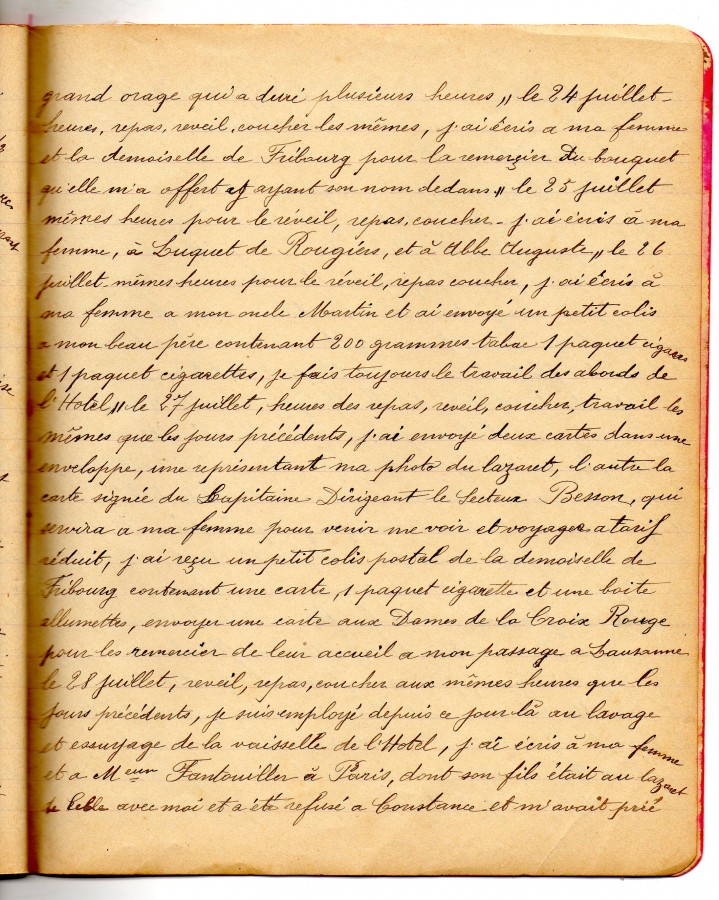 grand orage qui a duré plusieurs heures „ le 24 juillet-
heures, repas, reveil, coucher les mêmes, j'ai écris a ma femme
et la demoiselle de Fribourg pour la remerçier du bouquet
qu'elle m'a offert et ayant son nom dedans „ le 25 juillet
mêmes heures pour le réveil, repas, coucher - j'ai écris à ma
femme, à Luquet de Rougiers, et à Abbe Auguste „ le 26
juillet - mêmes heures pour le réveil, repas coucher, j'ai écris à
ma femme a mon oncle Martin et ai envoyé un petit colis
a mon beau père contenant 200 grammes tabac 1 paquet cigares
et 1 paquet cigarettes, je fais toujours le travail des abords de
l'Hotel „ le 27 juillet, heures des repas, reveil, coucher, travail les
mêmes que les jours précédents, j'ai envoyé deux cartes dans une
enveloppe, une représentant ma photo du lazaret, l'autre la
carte signée du Capitaine Dirigeant le Secteur Besson, qui
servira a ma femme pour venir me voir et voyager a tarif
réduit, j'ai reçu un petit colis postal de la demoiselle de
Fribourg contenant une carte, 1 paquet cigarette et une boite
allumettes, envoyer une carte aux Dames de la Croix Rouge
pour les remercier de leur accueil a mon passage a Lausanne
le 28 juillet, reveil, repas, coucher aux mêmes heures que les
jours précédents, je suis employé depuis ce jour là au lavage
et essuyage de la vaisselle de l'Hotel, j'ai écris à ma femme
et a Meur Fantouiller à Paris, dont son fils était au lazaret
de avec moi et a été refusé a Constance et m'avait prié